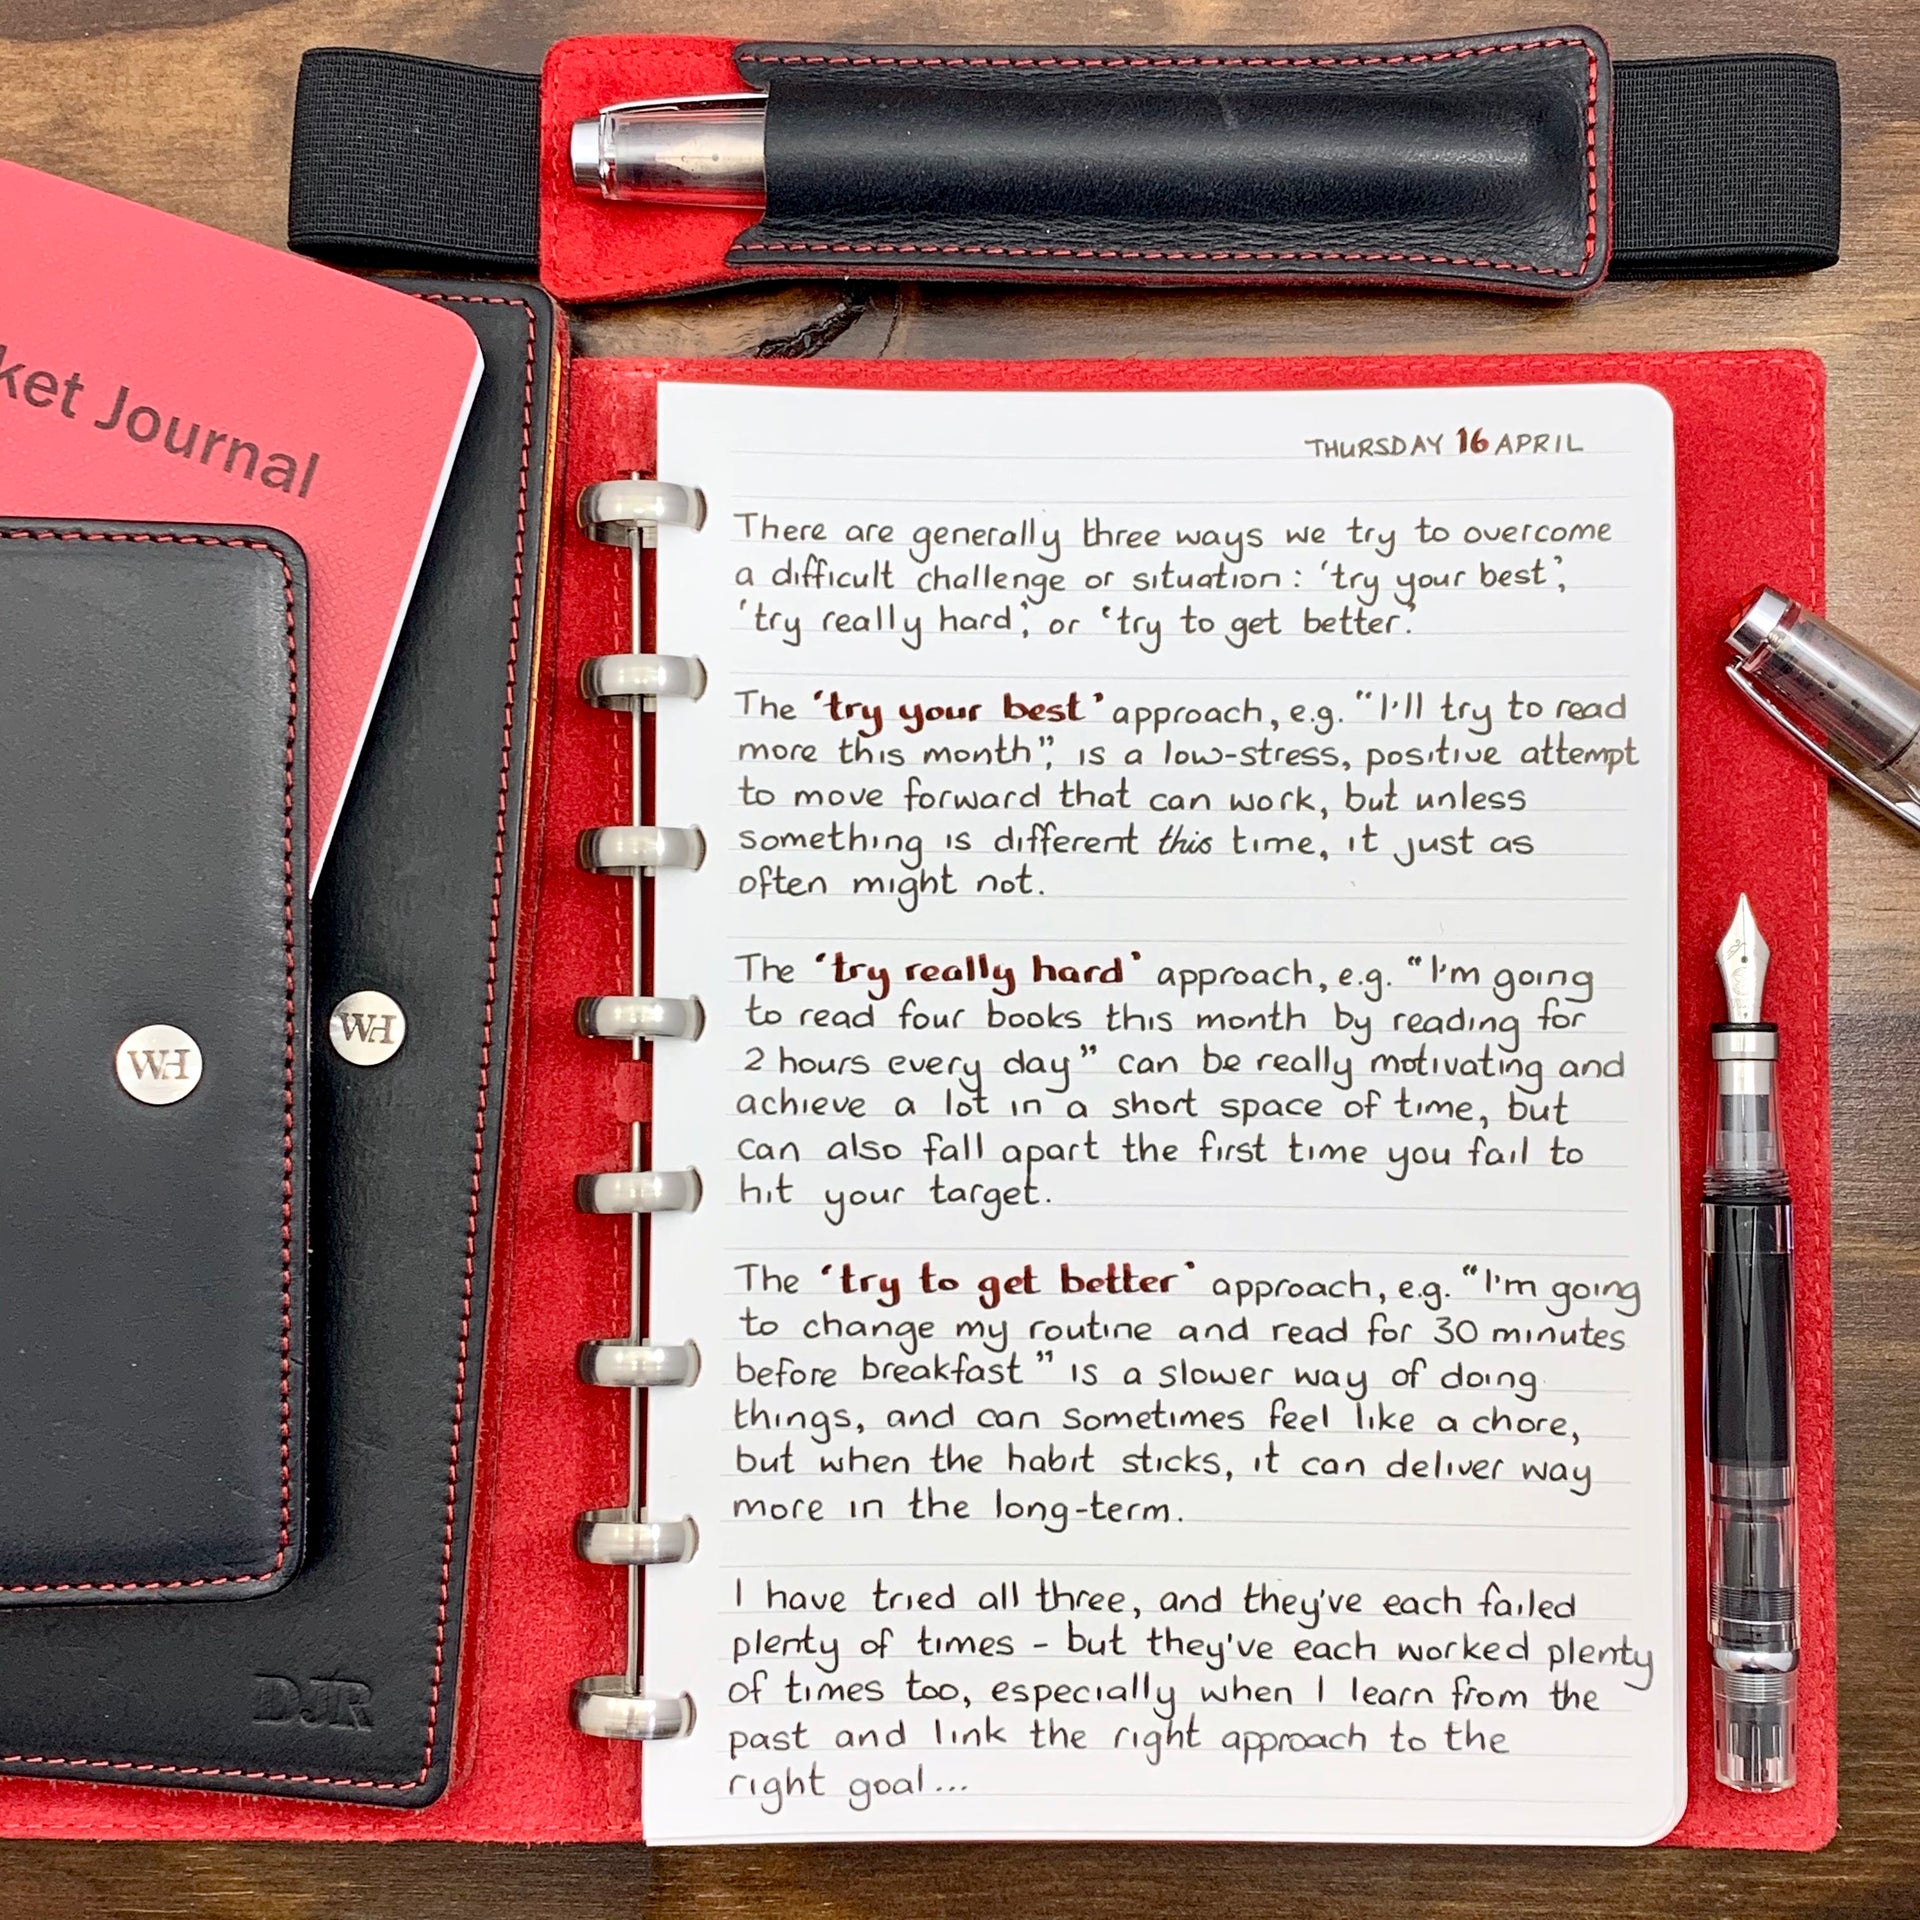 ket Journal
WH
WH
DJR
THURSDAY 16 APRIL
There are generally three ways we try to overcome
a difficult challenge or situation: 'try your best',
'try really hard', or 'try to get better'.
The 'try your best' approach, e.g. "I'll try to read
more this month", is a low-stress, positive attempt
to move forward that can work, but unless
something is different this time, it just as
often might not.
The 'try really hard' approach, e.g. "I'm going
to read four books this month by reading for
2 hours every day" can be really motivating and
achieve a lot in a short space of time, but
can also fall apart the first time you fail to
hit your target.
The 'try to get better' approach, e.g. "I'm going
to change my routine and read for 30 minutes
before breakfast" is a slower way of doing
things, and can sometimes feel like a chore,
but when the habit sticks, it can deliver way
more in the long-term.
I have tried all three, and they've each failed
plenty of times - but they've each worked plenty
of times too, especially when I learn from the
past and link the right approach to the
right goal...